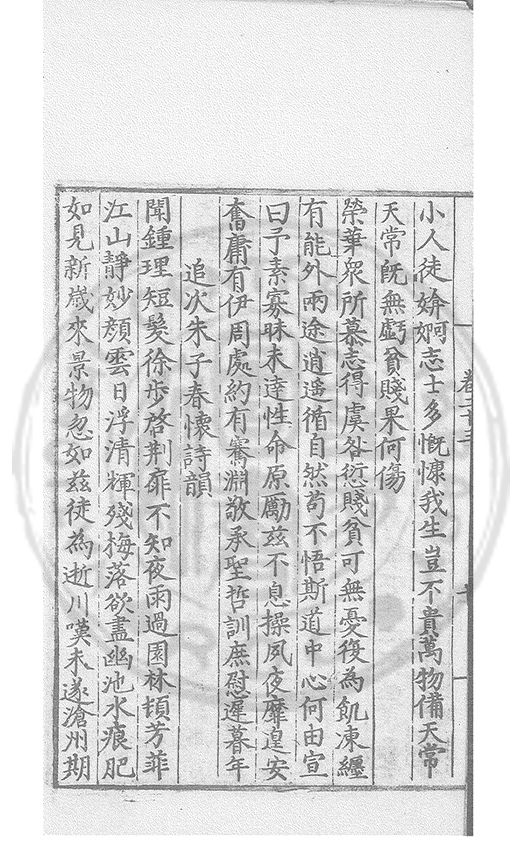 卷二十三
小人徒媕婀志士多慨慷我生豈不貴萬物備天常
天常旣無虧貧賤果何傷
榮華衆所慕志得虞咎愆賤貧可無憂復為飢凍纏
有能外兩途逍遥循自然苟不悟斯道中心何由宣
曰予素寡昧未達性命原勵兹不息操夙夜靡遑安
奮庸有伊周處約有騫淵敬承聖哲訓庶慰遲暮年
追次朱子春懷詩韻
聞鍾理短髮徐步啓荆扉不知夜雨過園林頓芳菲
江山靜妙顏雲日浮清輝殘梅落欲盡幽池水痕肥
如見新歲來景物忽如兹徒為逝川嘆未遂滄州期